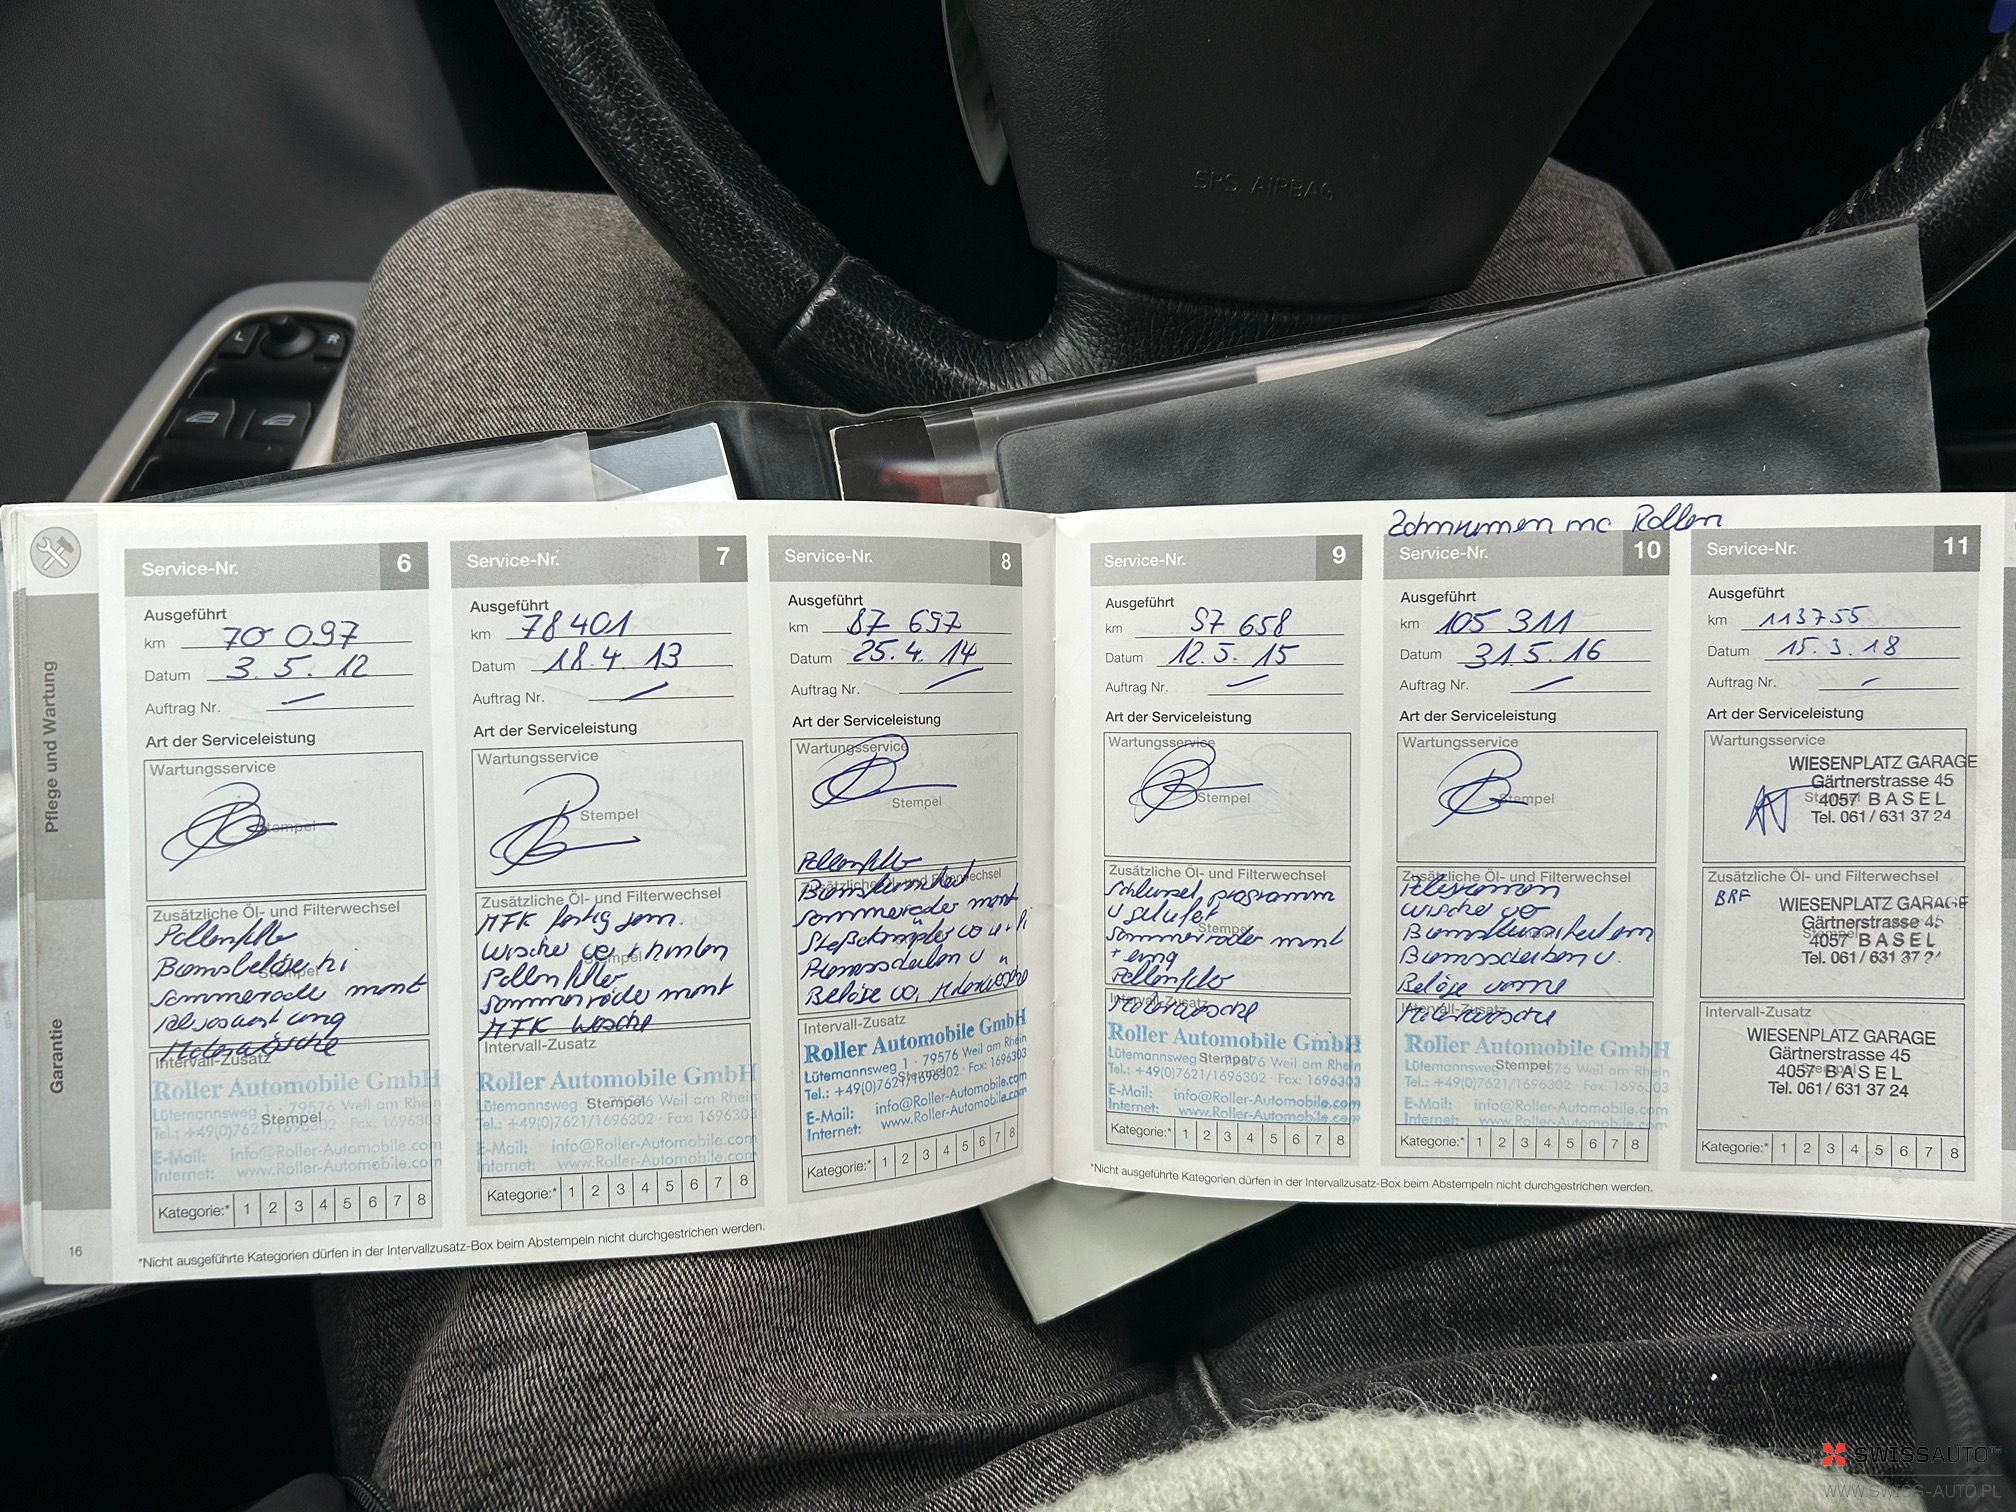 SRS AIRBAG
L R
Pflege und Wartung
Garantie
16
Service-Nr. 6
Ausgeführt
km 70 097
Datum 3.5.12
Auftrag Nr. –
Art der Serviceleistung
Wartungsservice
Stempel
Zusätzliche Öl- und Filterwechsel
Pollenfilter
Bremsbeläge hi
Stempel
Sommerräder mont
Motorwäsche
Intervall-Zusatz
Roller Automobile GmbH
Lütemannsweg 1 · 79576 Weil am Rhein
Tel.: +49(0)7621/1696302 · Fax: 1696303
Stempel
E-Mail: info@Roller-Automobile.com
Internet: www.Roller-Automobile.com
Kategorie:* 1 2 3 4 5 6 7 8
Service-Nr. 7
Ausgeführt
km 78401
Datum 18.4.13
Auftrag Nr. –
Art der Serviceleistung
Wartungsservice
Stempel
Zusätzliche Öl- und Filterwechsel
MFK fertig
Wischer vo + hinten
Stempel
Pollenfilter
Sommerräder mont
MFK Wäsche
Intervall-Zusatz
Roller Automobile GmbH
Lütemannsweg 1 · 79576 Weil am Rhein
Stempel
Tel.: +49(0)7621/1696302 · Fax: 1696303
E-Mail: info@Roller-Automobile.com
Internet: www.Roller-Automobile.com
Kategorie:* 1 2 3 4 5 6 7 8
*Nicht ausgeführte Kategorien dürfen in der Intervallzusatz-Box beim Abstempeln nicht durchgestrichen werden.
Service-Nr. 8
Ausgeführt
km 87 697
Datum 25.4.14
Auftrag Nr. –
Art der Serviceleistung
Wartungsservice
Stempel
Pollenfilter
Zusätzliche Öl- und Filterwechsel
Sommerräder mont
Stoßdämpfer vo u hi
Bremsscheiben u
Beläge vo, Motorwäsche
Intervall-Zusatz
Roller Automobile GmbH
Lütemannsweg 1 · 79576 Weil am Rhein
Tel.: +49(0)7621/1696302 · Fax: 1696303
Stempel
E-Mail: info@Roller-Automobile.com
Internet: www.Roller-Automobile.com
Kategorie:* 1 2 3 4 5 6 7 8
Service-Nr. 9
Ausgeführt
km 97 658
Datum 12.5.15
Auftrag Nr. –
Art der Serviceleistung
Wartungsservice
Stempel
Zusätzliche Öl- und Filterwechsel
Schlüssel programm
Stempel
Sommerräder mont
Pollenfilter
Intervall-Zusatz
Motorwäsche
Roller Automobile GmbH
Lütemannsweg 1 · 79576 Weil am Rhein
Stempel
Tel.: +49(0)7621/1696302 · Fax: 1696303
E-Mail: info@Roller-Automobile.com
Internet: www.Roller-Automobile.com
Kategorie:* 1 2 3 4 5 6 7 8
Zahnriemen inc Rollen
Service-Nr. 10
Ausgeführt
km 105 311
Datum 31.5.16
Auftrag Nr. –
Art der Serviceleistung
Wartungsservice
Stempel
Zusätzliche Öl- und Filterwechsel
Wischer vo
Stempel
Bremsscheiben u.
Beläge vorne
Intervall-Zusatz
Motorwäsche
Roller Automobile GmbH
Lütemannsweg 1 · 79576 Weil am Rhein
Stempel
Tel.: +49(0)7621/1696302 · Fax: 1696303
E-Mail: info@Roller-Automobile.com
Internet: www.Roller-Automobile.com
Kategorie:* 1 2 3 4 5 6 7 8
Service-Nr. 11
Ausgeführt
km 113755
Datum 15.3.18
Auftrag Nr. –
Art der Serviceleistung
Wartungsservice
WIESENPLATZ GARAGE
Gärtnerstrasse 45
Stempel
4057 BASEL
Tel. 061 / 631 37 24
Zusätzliche Öl- und Filterwechsel
BRF
WIESENPLATZ GARAGE
Gärtnerstrasse 45
Stempel
4057 BASEL
Tel. 061 / 631 37 24
Intervall-Zusatz
WIESENPLATZ GARAGE
Gärtnerstrasse 45
Stempel
4057 BASEL
Tel. 061 / 631 37 24
Kategorie:* 1 2 3 4 5 6 7 8
*Nicht ausgeführte Kategorien dürfen in der Intervallzusatz-Box beim Abstempeln nicht durchgestrichen werden.
SWISSAUTO™
WWW.SWISS-AUTO.PL